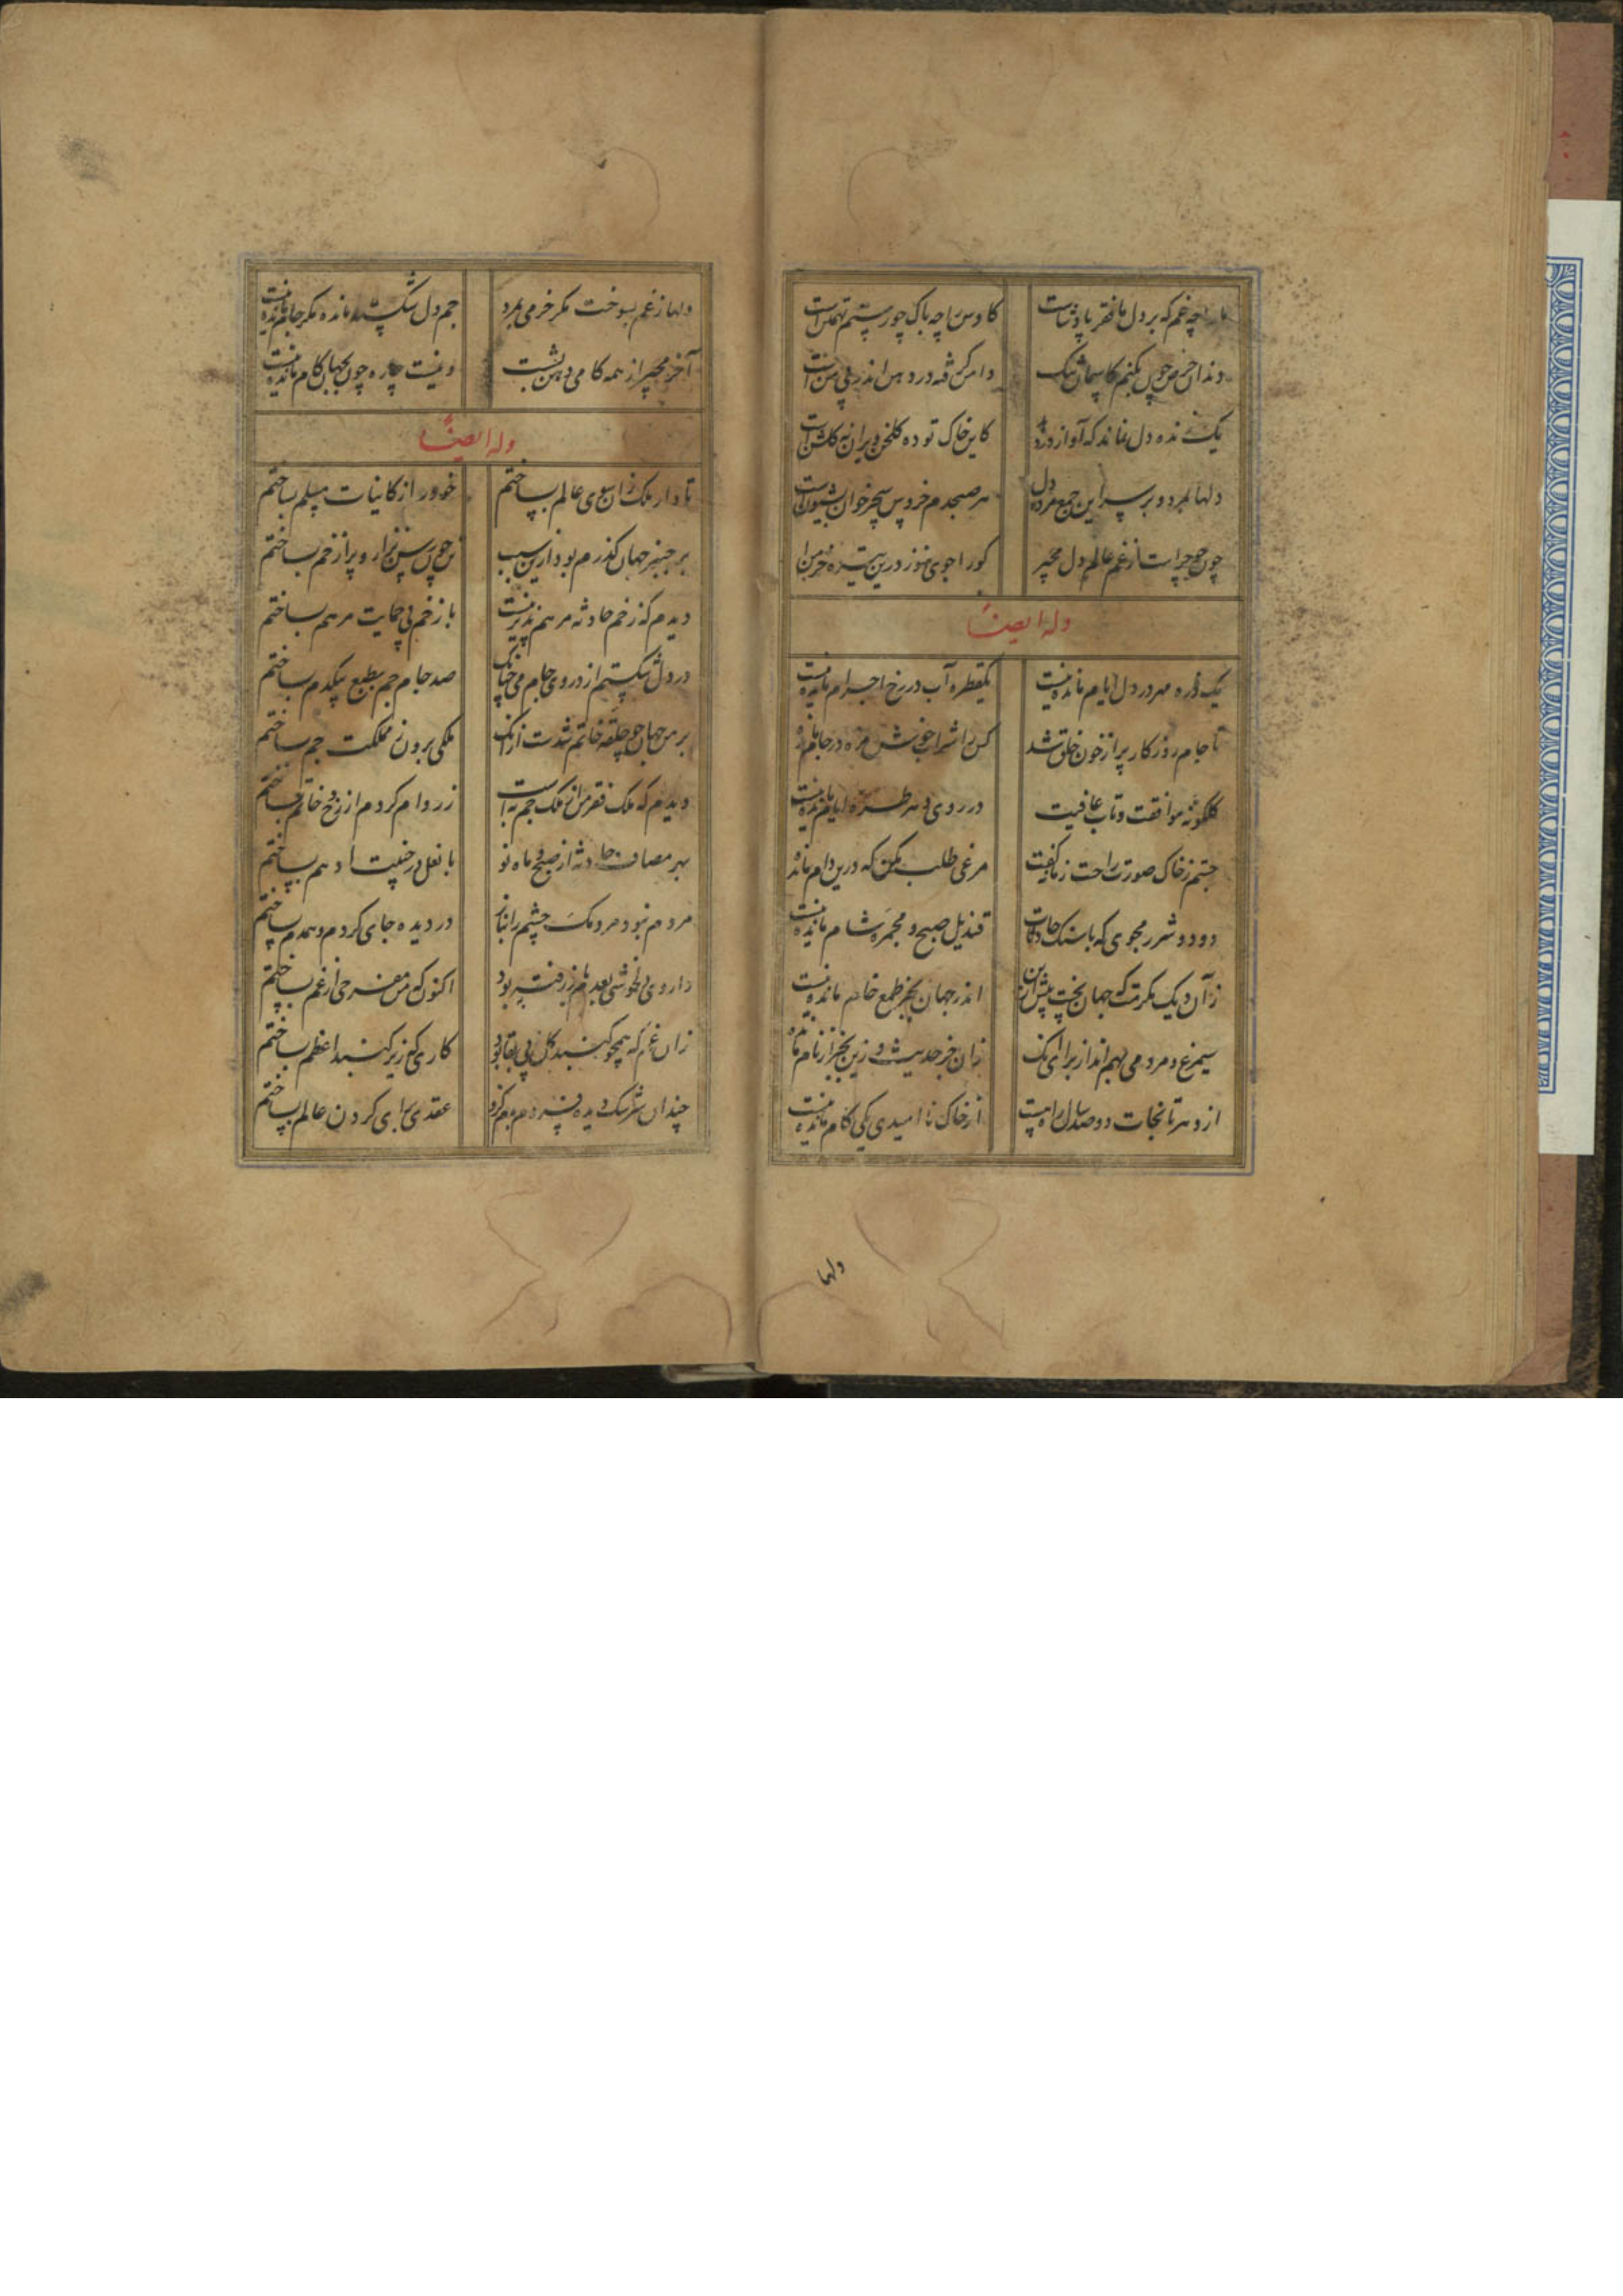 ما را چه غم که بر دل ما فقر پادشاست کاوس را چه باک چو رستم تهمتن است
دندان حرص چون بکنم کاسمان سگ دامن گرفته در دهن اندر پی من است
یک زنده دل نماند که آواز در دهد کاین خاک توده گلخن ویران نه گلشن است
دلها بمرد و بر سر این جمع مرده دل هر صبحدم خروس سحرخوان بشیون است
چون جو جو است از غم عالم دل مجیر کو را جوی هنوز درین تیره خرمن است
وله ایضاً
یک ذره مهر در دل ایام مانده نیست یکقطره آب در رخ اجرام مانده نیست
تا جام روزگار پر از خون خلق شد کس را شراب خوش مزه در جام مانده
گلگونه موافقت و تاب عافیت در روی دهر و طره ایام مانده نیست
جستم ز خاک صورت راحت زمانه گفت مرغی طلب مکن که درین دام مانده
دود و شرر مجوی که با سنگ حادثات قندیل صبح و مجمره شام مانده نیست
زان دیگ مکرمت که جهان پخت پیش ازین اندر جهان بجز طمع خام مانده نیست
سیمرغ و مردمی بهم‌اند از برای آنک زان جز حدیث و زین بجز از نام مانده
از دهر تا نجات دو صد ساله راهست از خاک نا امیدی یکی گام مانده نیست
دلها
دلها ز غم بسوخت مگر خرمی بمرد جم دل شکسته مانده مگر جام مانده نیست
آخر مجیر از همه کامی دهن بشست و نیست چاره چون بجهان کام مانده نیست
وله ایضاً
تا دار ملک زان سوی عالم بساختم خود را ز کاینات مسلم بساختم
بر چنبر جهان گذرم بود ازین سبب تن چون رسن نزار و پر از خم بساختم
دیدم که زخم حادثه مرهم پذیر نیست با زخم بی حمایت مرهم بساختم
در دل شکستم از دروی جام می چنانک صد جام جم بطبع بیکدم بساختم
بر من جهان چو حلقه خاتم شدست از آنک ملکی برون ز مملکت جم بساختم
دیدم که ملک فقر من از ملک جم به است زر وام کردم از رخ و خاتم بساختم
بهر مصاف حادثه از صبح و ماه نو با نعل در خنیبت ادهم بساختم
مردم نبود مردمک چشم را بناز در دیده جای کردم و همدم بساختم
داروی دلخوشی بعدم باز رفته بود اکنون که من مفرحی از غم بساختم
زان غم که همچو گنبد گل بی بقا بود کاری که زیر گنبد اعظم بساختم
چندان سرشک دیده فسردم بدم کزو عقدی برای گردن عالم بساختم